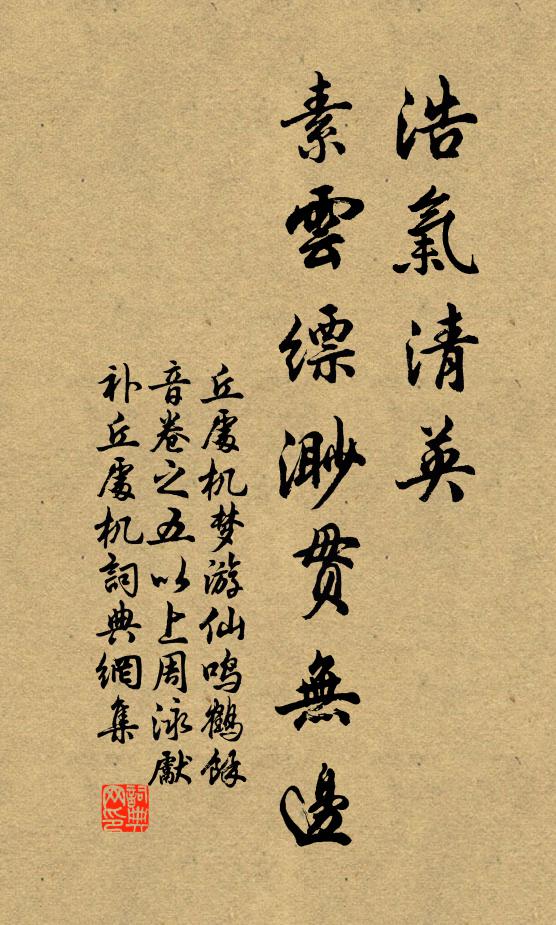 浩氣清英
素雲縹渺貫無邊
丘處机梦游仙鸣鶴餘
音卷之五以上周泳獻
补丘處机詞典網集
詞典网印